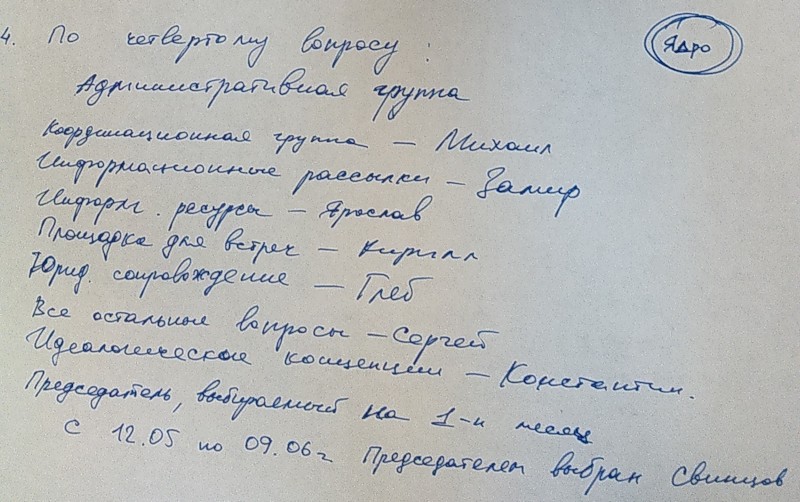 4. По четвертому вопросу:
Ядро
Административная группа
Координационная группа – Михаил
Информационные рассылки – Замир
Информ. ресурсы – Ярослав
Площадка для встреч – Кирилл
Юрид. сопровождение – Глеб
Все остальные вопросы – Сергей
Идеологические концепции – Константин.
Председатель, выбираемый на 1-н месяц
С 12.05 по 09.06г Председателем выбран Свинцов